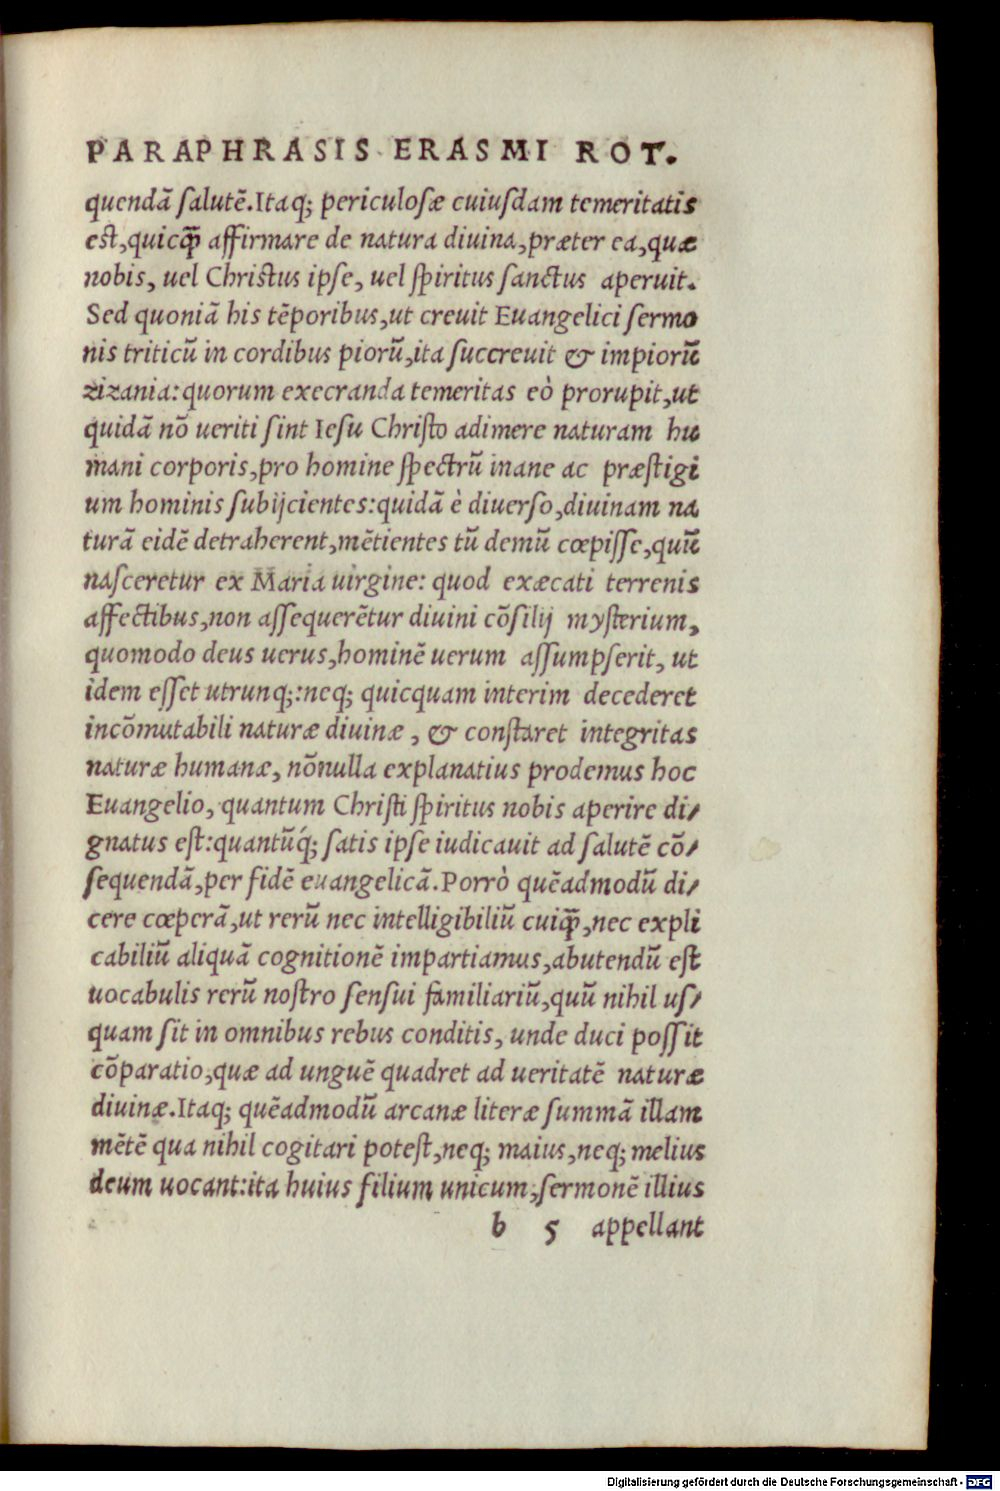 PARAPHRASIS ERASMI ROT.
quendā salutē.Itaq; periculosæ cuiusdam temeritatis
est,quicq̄ȝ affirmare de natura diuina,præter ea,quæ
nobis, uel Christus ipse, uel spiritus sanctus aperuit.
Sed quoniā his tēporibus,ut creuit Euangelici sermo
nis triticū in cordibus piorū,ita succreuit & impiorū
zizania:quorum execranda temeritas eò prorupit,ut
quidā nō ueriti sint Iesu Christo adimere naturam hu
mani corporis,pro homine spectrū inane ac præstigi
um hominis subijcientes:quidā è diuerso,diuinam na
turā eidē detraherent,mētientes tū demū cœpisse,quū
nasceretur ex Maria uirgine: quod exæcati terrenis
affectibus,non assequerētur diuini cōsilij mysterium,
quomodo deus uerus,hominē uerum assumpserit, ut
idem esset utrunq;:neq; quicquam interim decederet
incōmutabili naturæ diuinæ , & constaret integritas
naturæ humanæ, nōnulla explanatius prodemus hoc
Euangelio, quantum Christi spiritus nobis aperire di/
gnatus est:quantūq́; satis ipse iudicauit ad salutē cō/
sequendā,per fidē euangelicā.Porrò quēadmodū di/
cere cœperā,ut rerū nec intelligibiliū cuiq̄ȝ,nec expli
cabiliū aliquā cognitionē impartiamus,abutendū est
uocabulis rerū nostro sensui familiariū,quū nihil us/
quam sit in omnibus rebus conditis, unde duci possit
cōparatio,quæ ad unguē quadret ad ueritatē naturæ
diuinæ.Itaq; quēadmodū arcanæ literæ summā illam
mētē qua nihil cogitari potest,neq; maius,neq; melius
deum uocant:ita huius filium unicum,sermonē illius
b 5 appellant
Digitalisierung gefördert durch die Deutsche Forschungsgemeinschaft - DFG